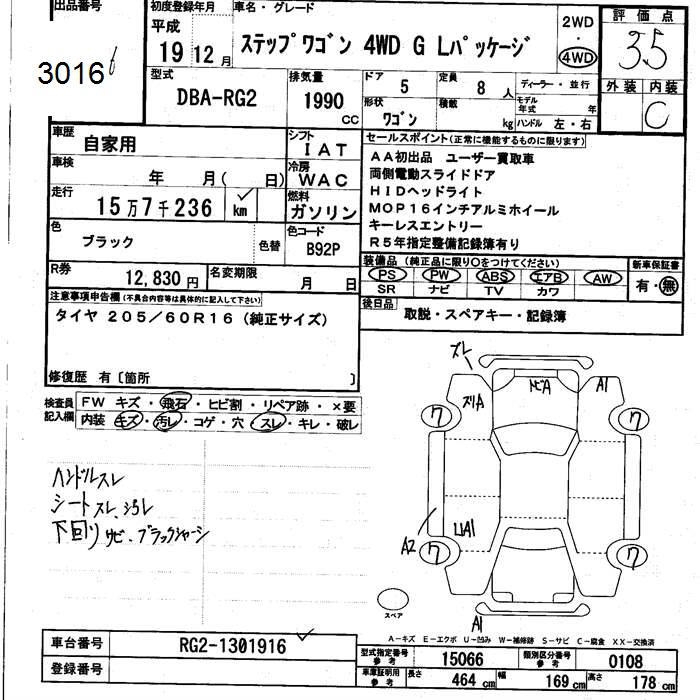 出品番号
3016
初度登録年月
平成
19 12月
車名・グレード
ステップワゴン 4WD G Lパッケージ
2WD
・
4WD
評価点
3.5
外装 内装
C
型式
DBA-RG2
排気量
1990
cc
ドア
5
定員
8 人
形状
ワゴン
積載
kg
ディーラー・並行
モデル年式 年
ハンドル 左・右
車歴
自家用
シフト
IAT
車検
年 月( 日)
冷房
WAC
走行
15万7千236 km
燃料
ガソリン
色
ブラック
色替
色コード
B92P
R券
12,830円
名変期限
月 日
セールスポイント(正常に機能するものに限ります)
AA初出品 ユーザー買取車
両側電動スライドドア
HIDヘッドライト
MOP16インチアルミホイール
キーレスエントリー
R5年指定整備記録簿有り
装備品(純正品に限り○をつけてください)
PS PW ABS エアB AW
SR ナビ TV カワ
新車保証書
有・無
後日品
取説・スペアキー・記録簿
注意事項申告欄(不具合内容等は具体的に記入して下さい)
タイヤ 205/60R16(純正サイズ)
修復歴 有〔箇所 〕
検査員
記入欄
FW キズ・飛石・ヒビ割・リペア跡・×要
内装 キズ・汚レ・コゲ・穴・スレ・キレ・破レ
ハンドルスレ
シートスレ、汚レ
下回りサビ、ブラックシャーシ
ズレ
ズリA
トビA
A1
7
7
A2
7
7
A1
スペア
A－キズ E－エクボ U－凹み W－補修跡 S－サビ C－腐食 XX－交換済
車台番号
RG2-1301916
登録番号
型式指定番号
参考
15066
類別区分番号
参考
0108
車庫証明用
参考
長さ 464 cm
幅 169 cm
高さ 178 cm